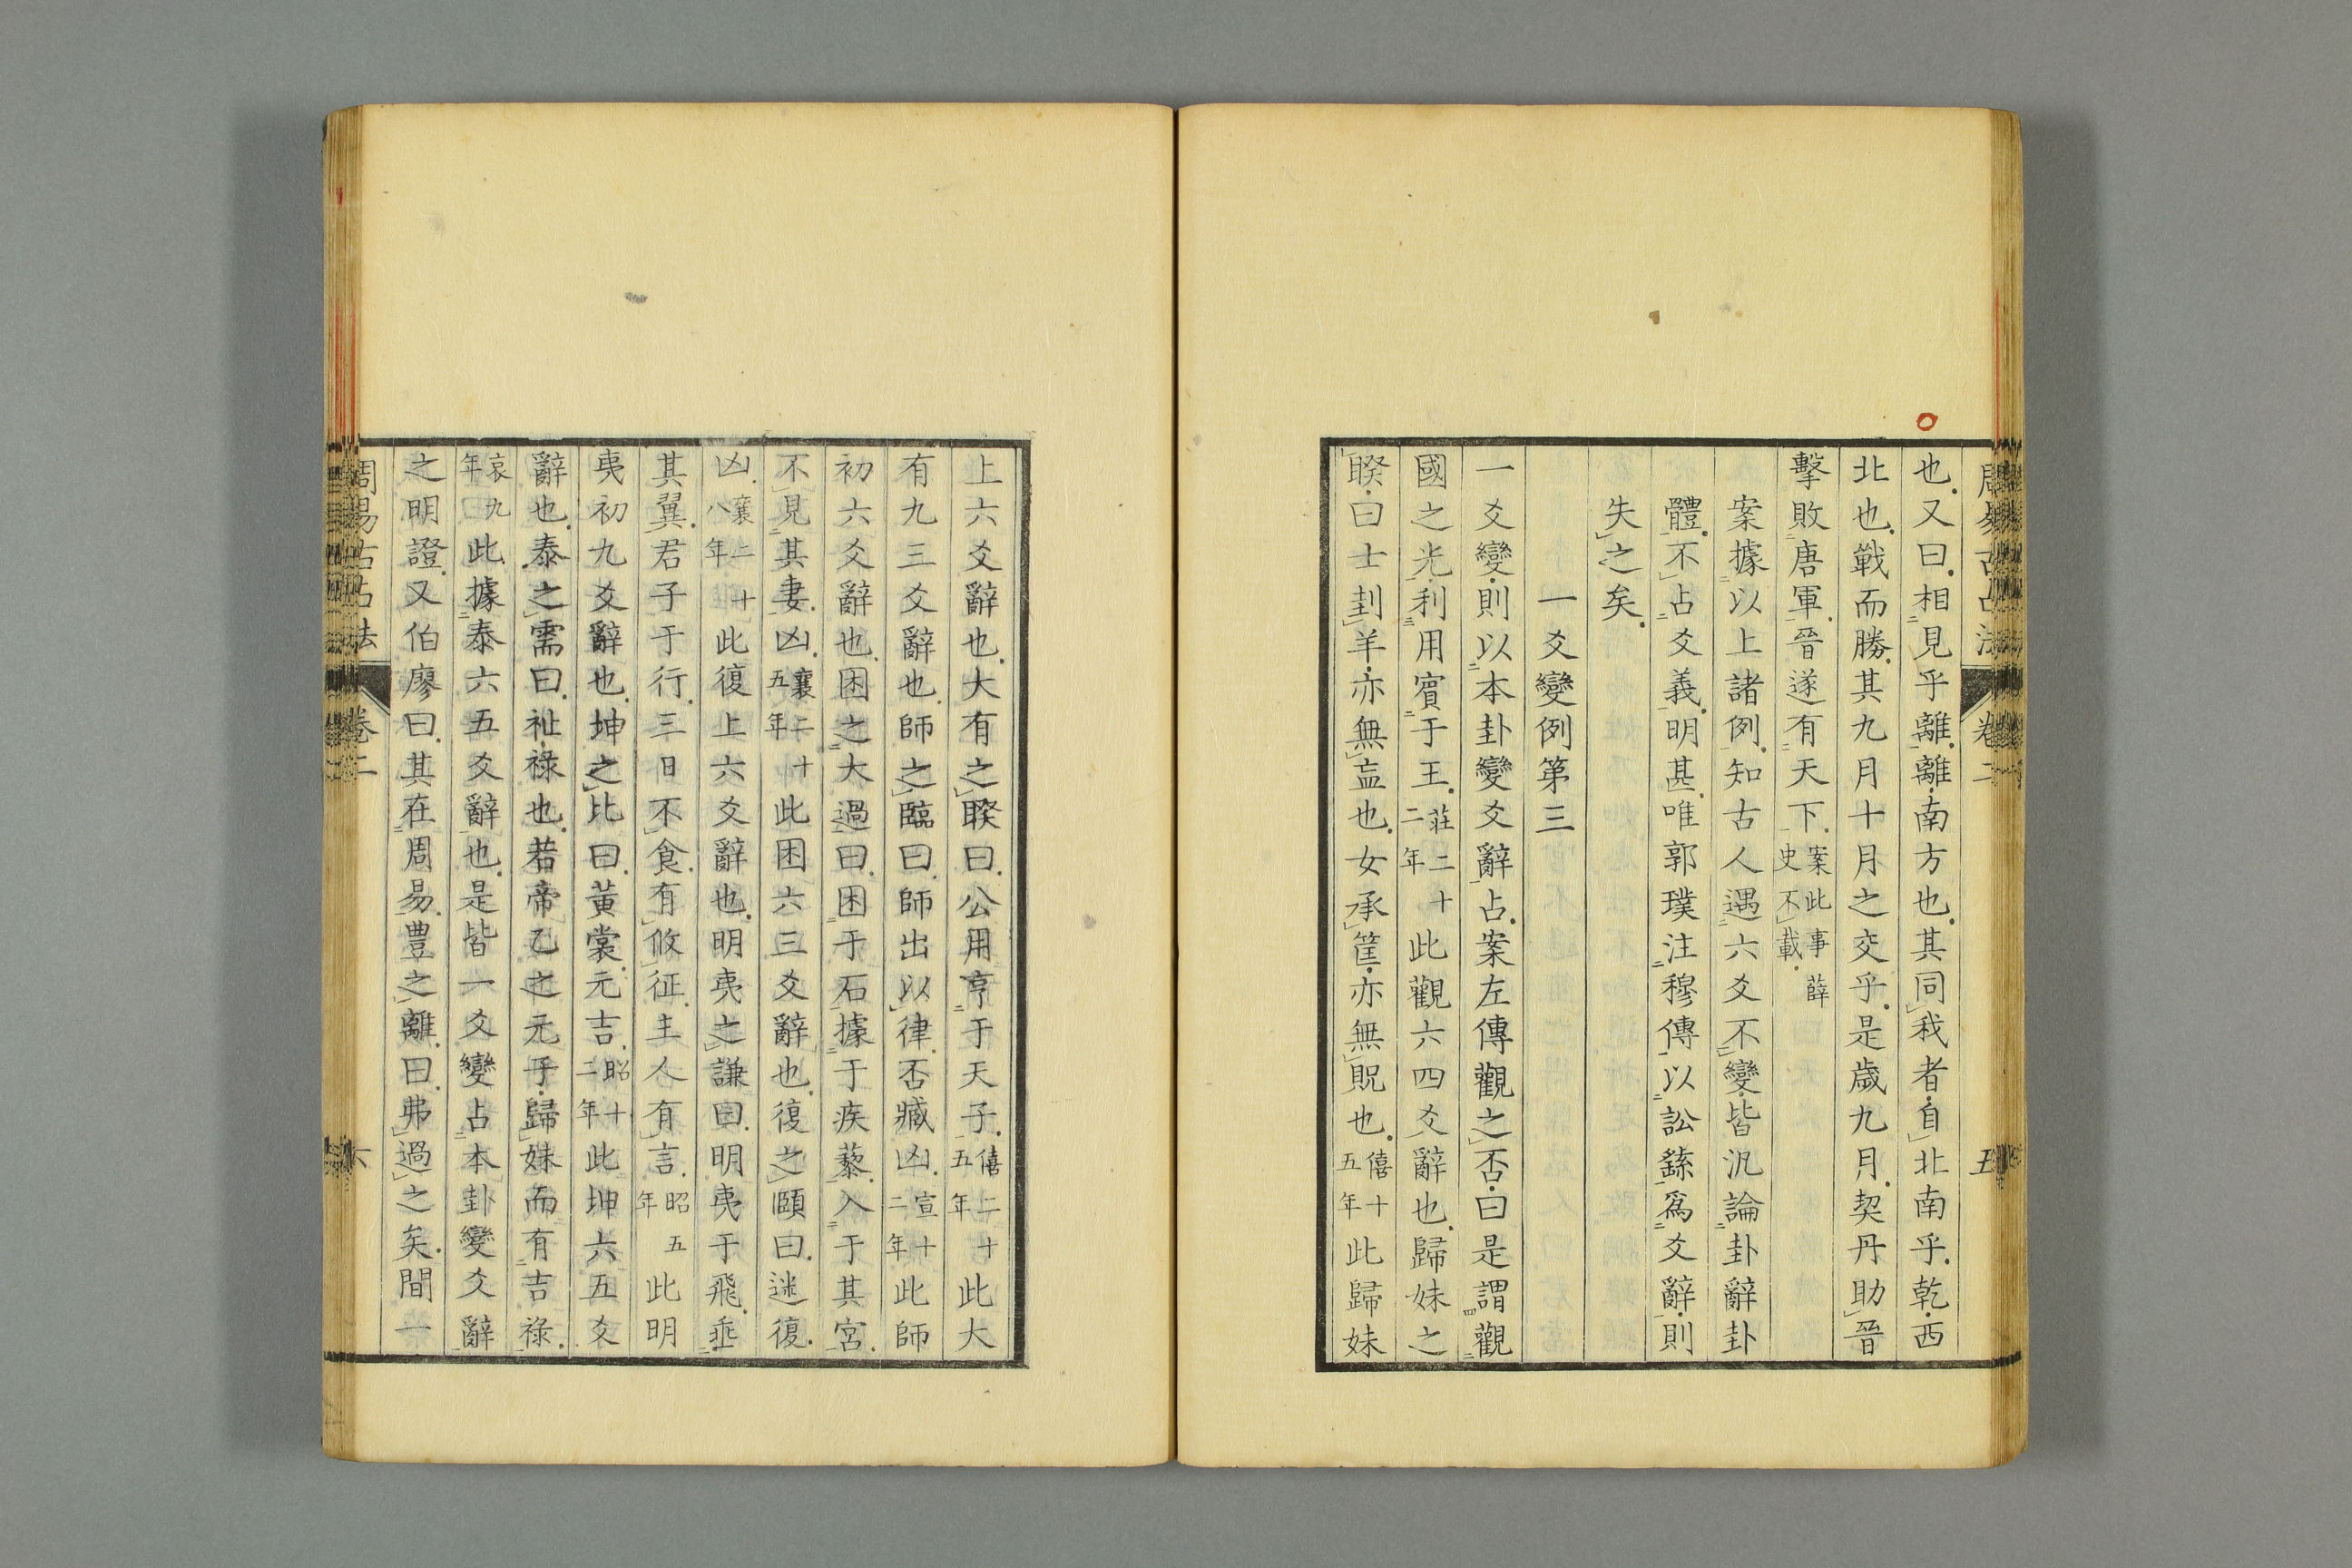 周易古占法 卷二 五
也又曰相見乎離離南方也其同我者自北南乎乾西
北也戰而勝其九月十月之交乎是歲九月契丹助晉
擊敗唐軍晉遂有天下案此事薛史不載
案據以上諸例知古人遇六爻不變皆汎論卦辭卦
體不占爻義明甚唯郭璞注穆傳以訟繇爲爻辭則
失之矣
一爻變例第三
一爻變則以本卦變爻辭占案左傳觀之否曰是謂觀
國之光利用賓于王莊二十二年此觀六四爻辭也歸妹之
睽曰士刲羊亦無衁也女承筐亦無貺也僖十五年此歸妹
上六爻辭也大有之睽曰公用亨于天子僖二十五年此大
有九三爻辭也師之臨曰師出以律否臧凶宣十二年此師
初六爻辭也困之大過曰困于石據于疾藜入于其宮
不見其妻凶襄二十五年此困六三爻辭也復之頤曰迷復
凶襄二十八年此復上六爻辭也明夷之謙曰明夷于飛垂
其翼君子于行三日不食有攸征主人有言昭五年此明
夷初九爻辭也坤之比曰黃裳元吉昭十二年此坤六五爻
辭也泰之需曰祉祿也若帝乙之元子歸妹而有吉祿
哀九年此據泰六五爻辭也是皆一爻變占本卦變爻辭
之明證又伯廖曰其在周易豐之離曰弗過之矣間一
周易古占法 卷二 六